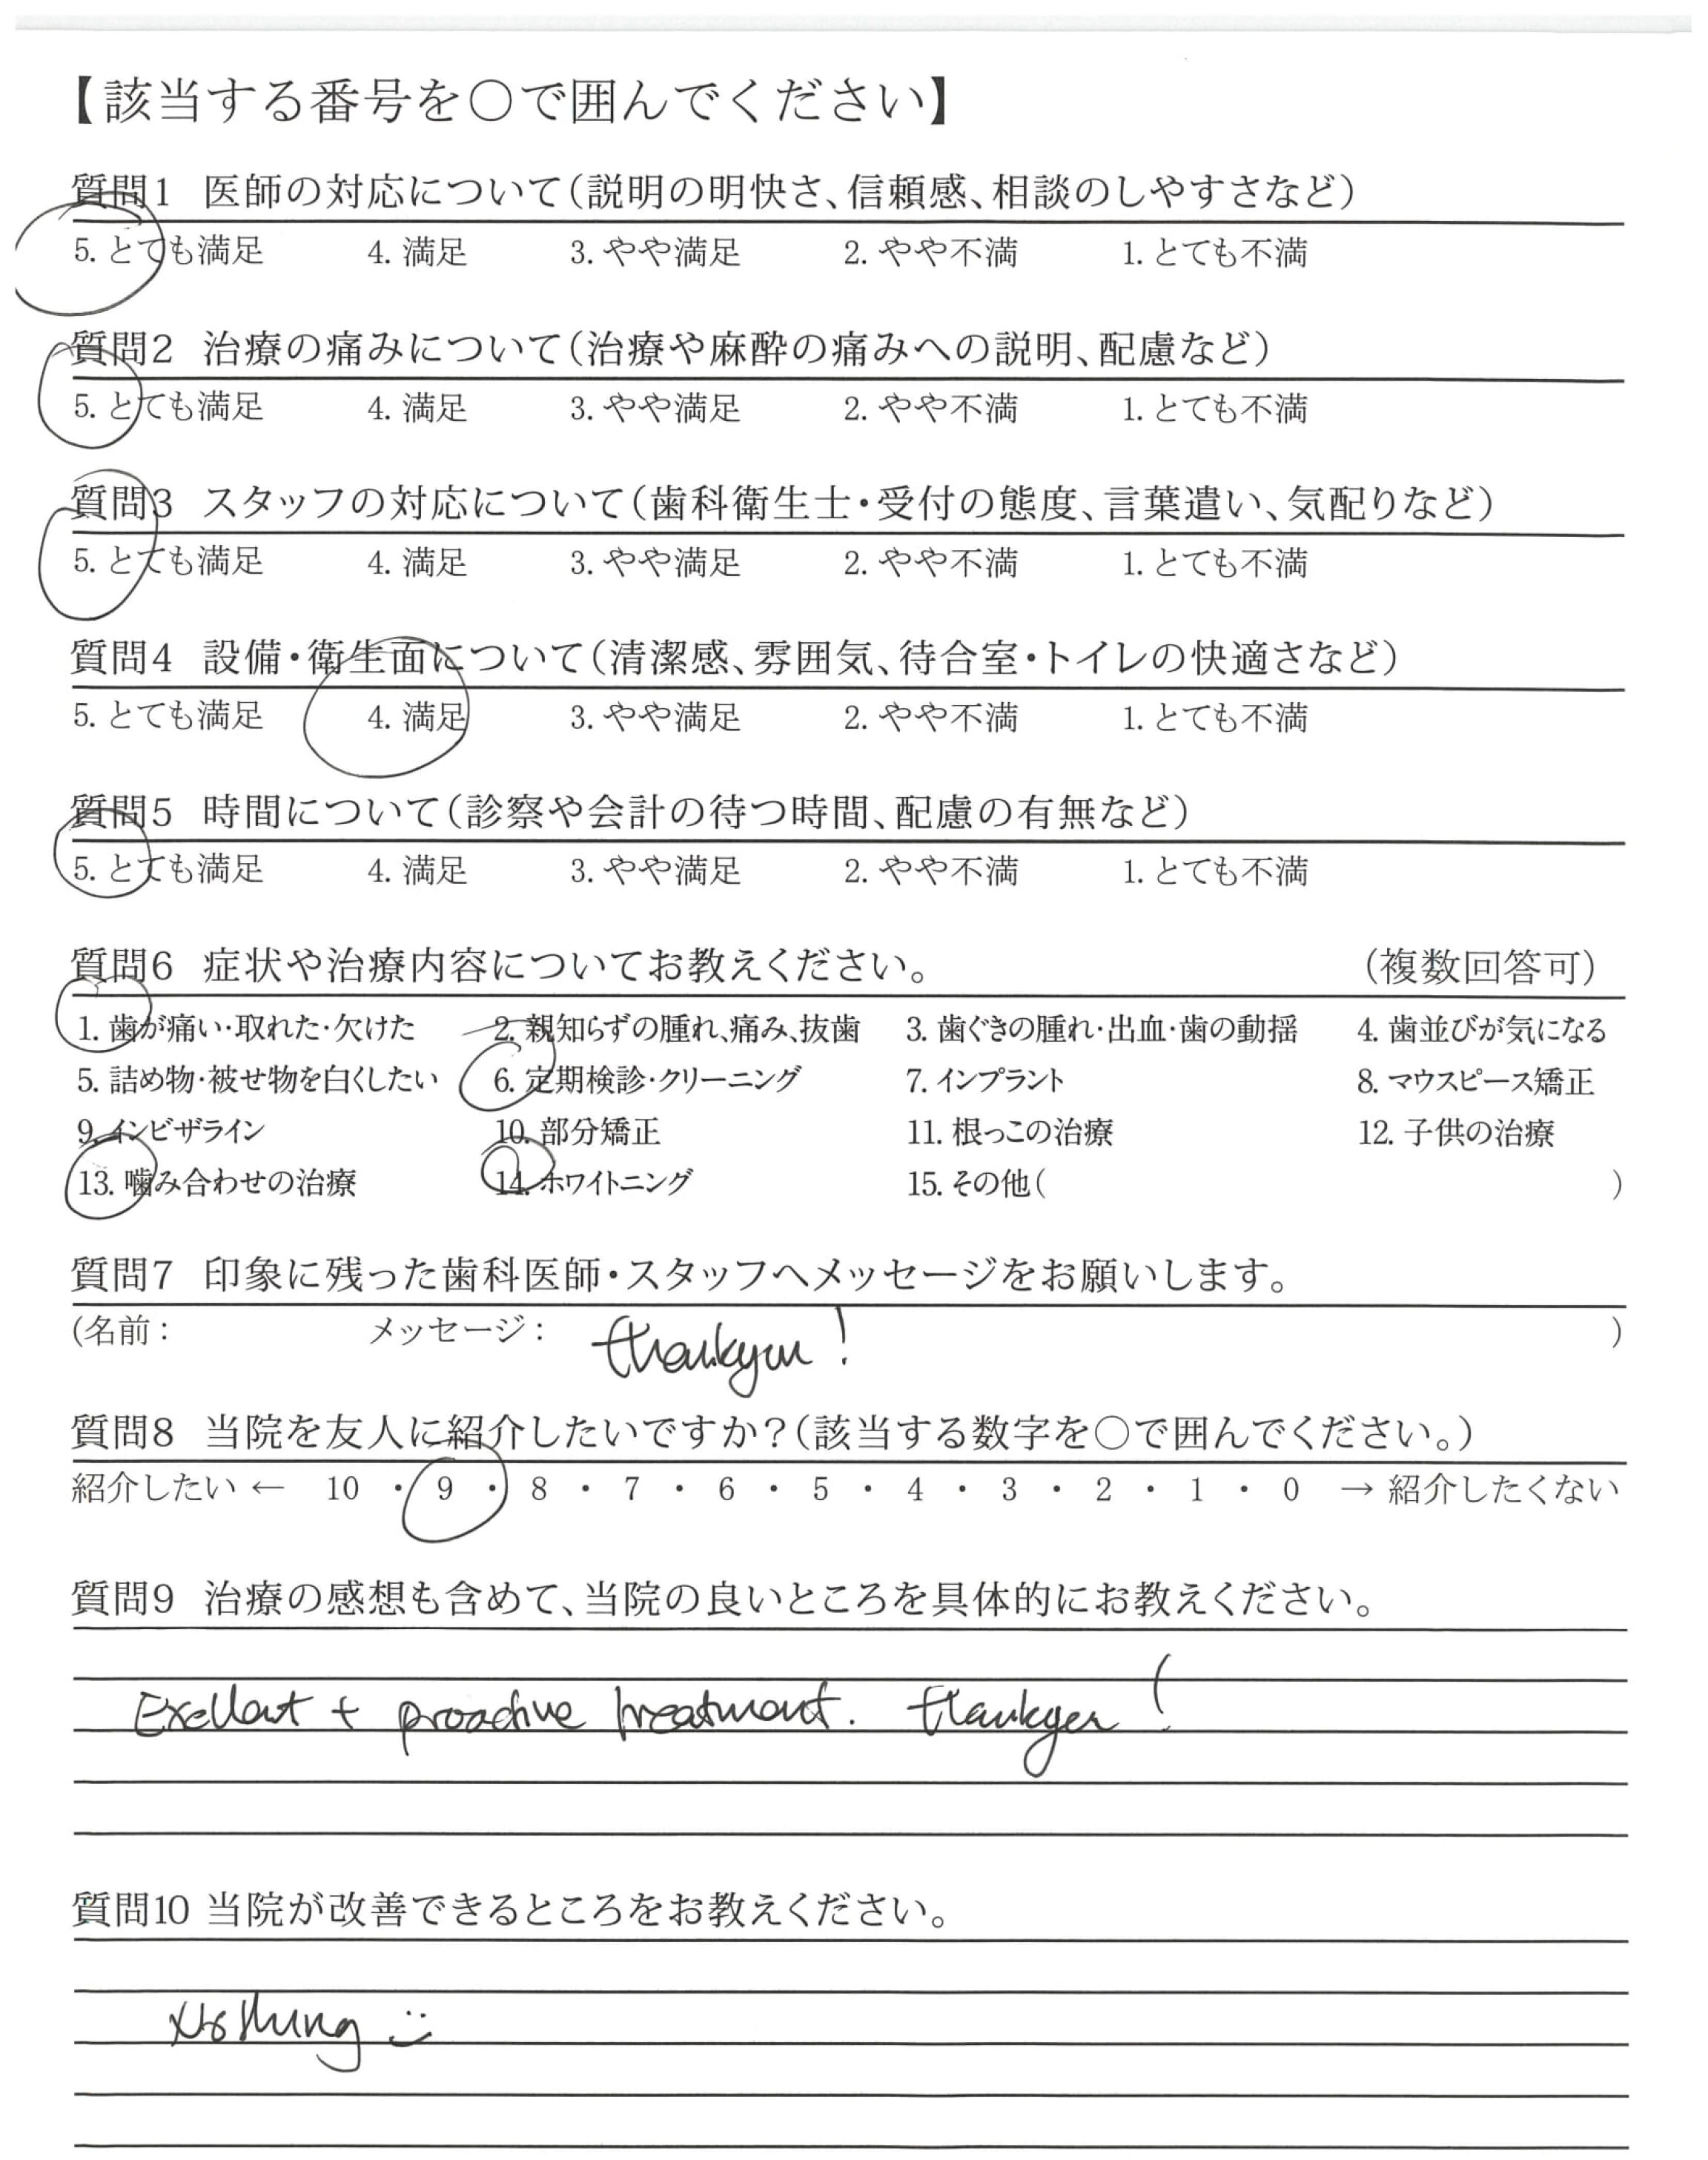 【該当する番号を○で囲んでください】
質問1 医師の対応について(説明の明快さ、信頼感、相談のしやすさなど)
5. とても満足 4. 満足 3. やや満足 2. やや不満 1. とても不満
質問2 治療の痛みについて(治療や麻酔の痛みへの説明、配慮など)
5. とても満足 4. 満足 3. やや満足 2. やや不満 1. とても不満
質問3 スタッフの対応について(歯科衛生士・受付の態度、言葉遣い、気配りなど)
5. とても満足 4. 満足 3. やや満足 2. やや不満 1. とても不満
質問4 設備・衛生面について(清潔感、雰囲気、待合室・トイレの快適さなど)
5. とても満足 4. 満足 3. やや満足 2. やや不満 1. とても不満
質問5 時間について(診察や会計の待つ時間、配慮の有無など)
5. とても満足 4. 満足 3. やや満足 2. やや不満 1. とても不満
質問6 症状や治療内容についてお教えください。 (複数回答可)
1. 歯が痛い・取れた・欠けた 2. 親知らずの腫れ、痛み、抜歯 3. 歯ぐきの腫れ・出血・歯の動揺 4. 歯並びが気になる
5. 詰め物・被せ物を白くしたい 6. 定期検診・クリーニング 7. インプラント 8. マウスピース矯正
9. インビザライン 10. 部分矯正 11. 根っこの治療 12. 子供の治療
13. 噛み合わせの治療 14. ホワイトニング 15. その他( )
質問7 印象に残った歯科医師・スタッフへメッセージをお願いします。
(名前: メッセージ: thankyou! )
質問8 当院を友人に紹介したいですか?(該当する数字を○で囲んでください。)
紹介したい ← 10 ・ 9 ・ 8 ・ 7 ・ 6 ・ 5 ・ 4 ・ 3 ・ 2 ・ 1 ・ 0 → 紹介したくない
質問9 治療の感想も含めて、当院の良いところを具体的にお教えください。
Exellent + proactive treatment. thankyou!
質問10 当院が改善できるところをお教えください。
Nothing :)